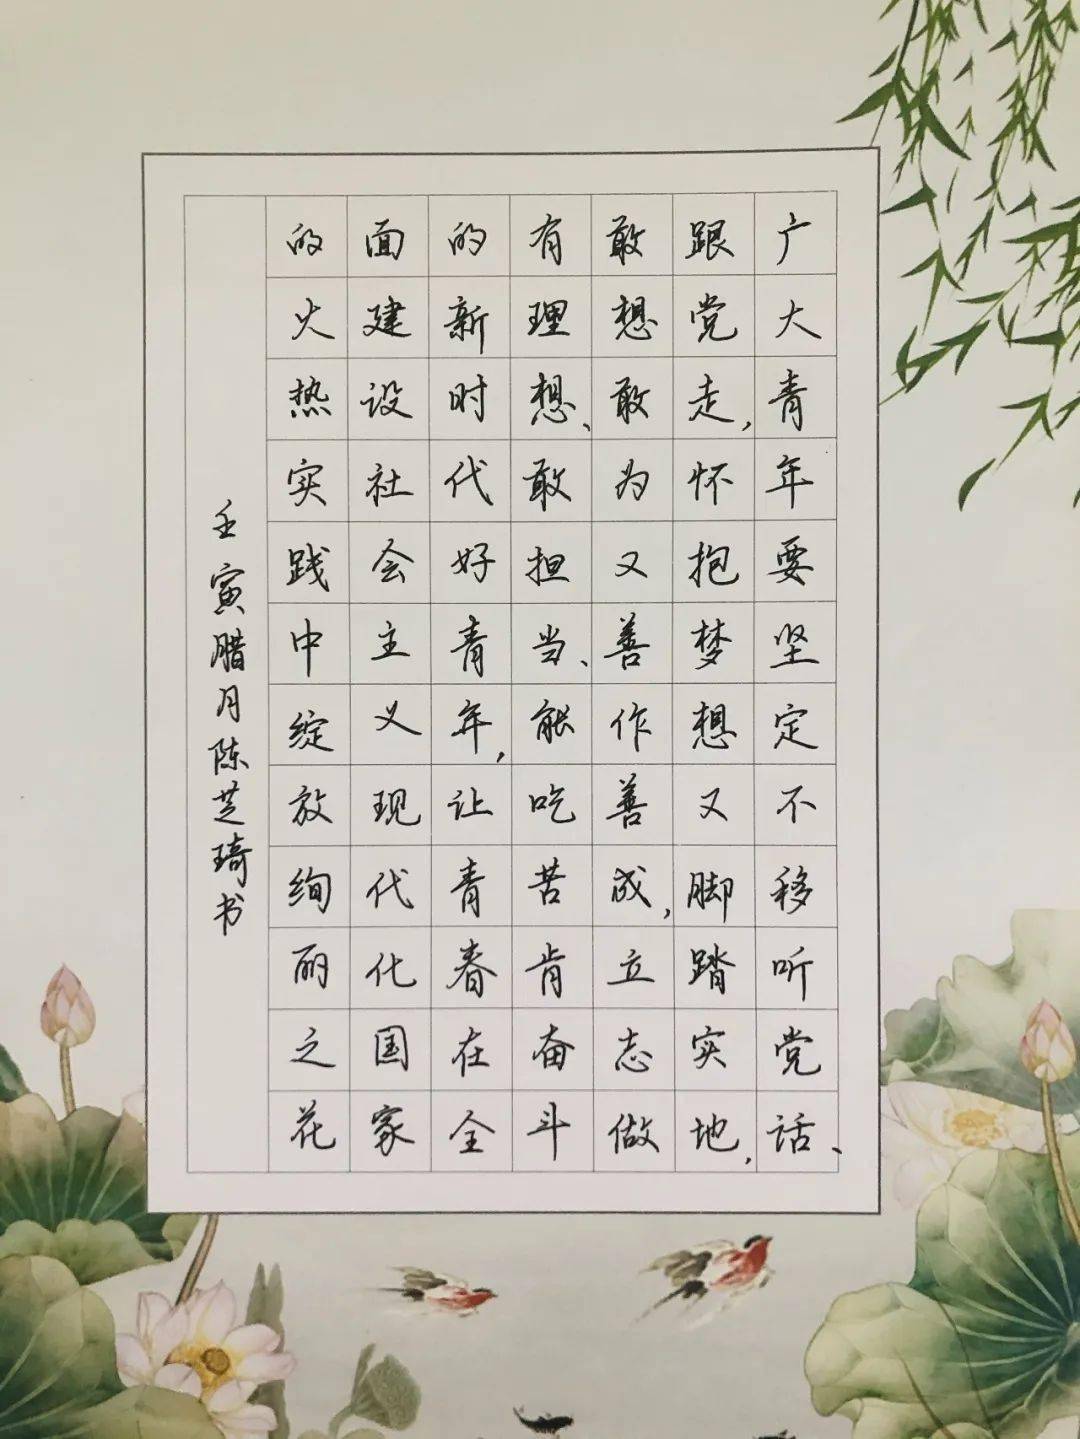 广大青年要坚定不移听党话、
跟党走,怀抱梦想又脚踏实地,
敢想敢为又善作善成,立志做
有理想、敢担当、能吃苦肯奋斗
的新时代好青年,让青春在全
面建设社会主义现代化国家
的火热实践中绽放绚丽之花
壬寅腊月陈芝琦书